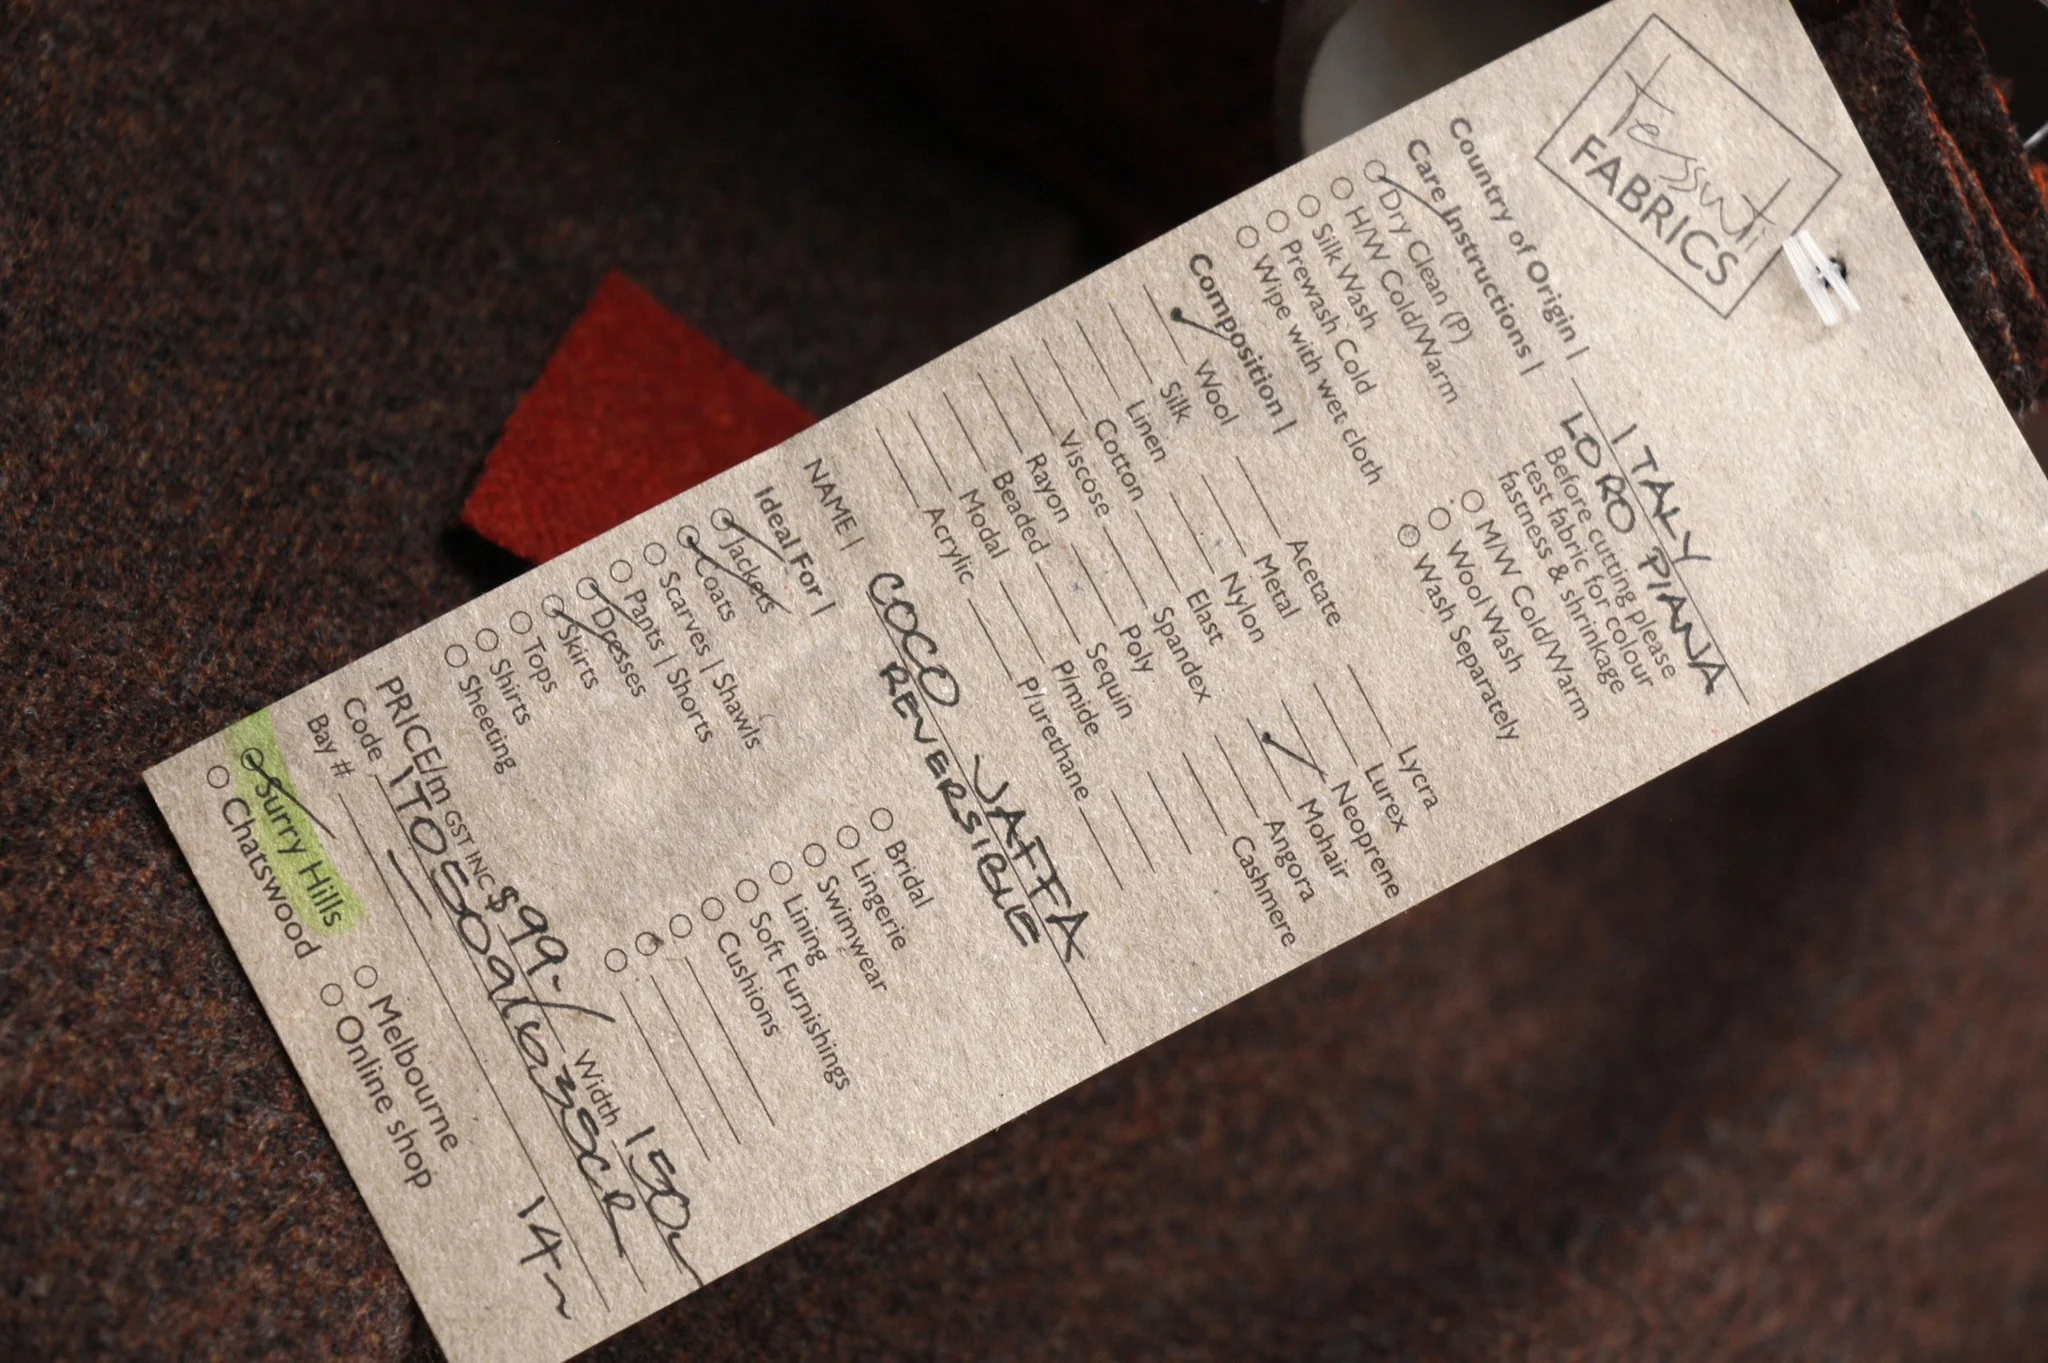 Tessuti
FABRICS
Country of Origin | ITALY
LORO PIANA
Care Instructions |
Before cutting please
test fabric for colour
fastness & shrinkage
Dry Clean (P)
H/W Cold/Warm
Silk Wash
Prewash Cold
Wipe with wet cloth
M/W Cold/Warm
Wool Wash
Wash Separately
Composition |
Wool
Silk
Linen
Cotton
Viscose
Rayon
Beaded
Modal
Acrylic
Acetate
Metal
Nylon
Elast
Spandex
Poly
Sequin
P/mide
P/urethane
Lycra
Lurex
Neoprene
Mohair
Angora
Cashmere
NAME | COCO JAFFA
REVERSIBLE
Ideal For |
Jackets
Coats
Scarves | Shawls
Pants | Shorts
Dresses
Skirts
Tops
Shirts
Sheeting
Bridal
Lingerie
Swimwear
Lining
Soft Furnishings
Cushions
PRICE/m GST INC. $99.- Width 150
Code
Bay # 14
Surry Hills
Chatswood
Melbourne
Online shop